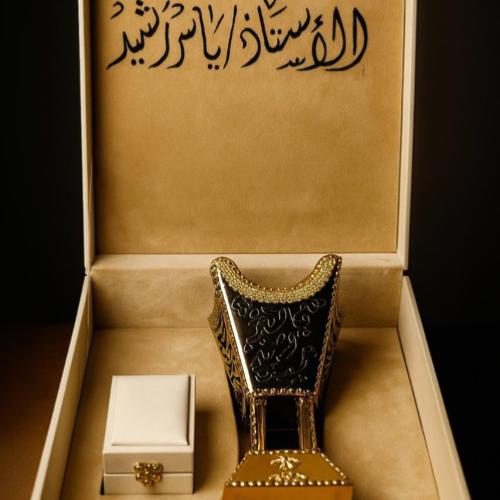 الأستاذ/ ياسر رشيد